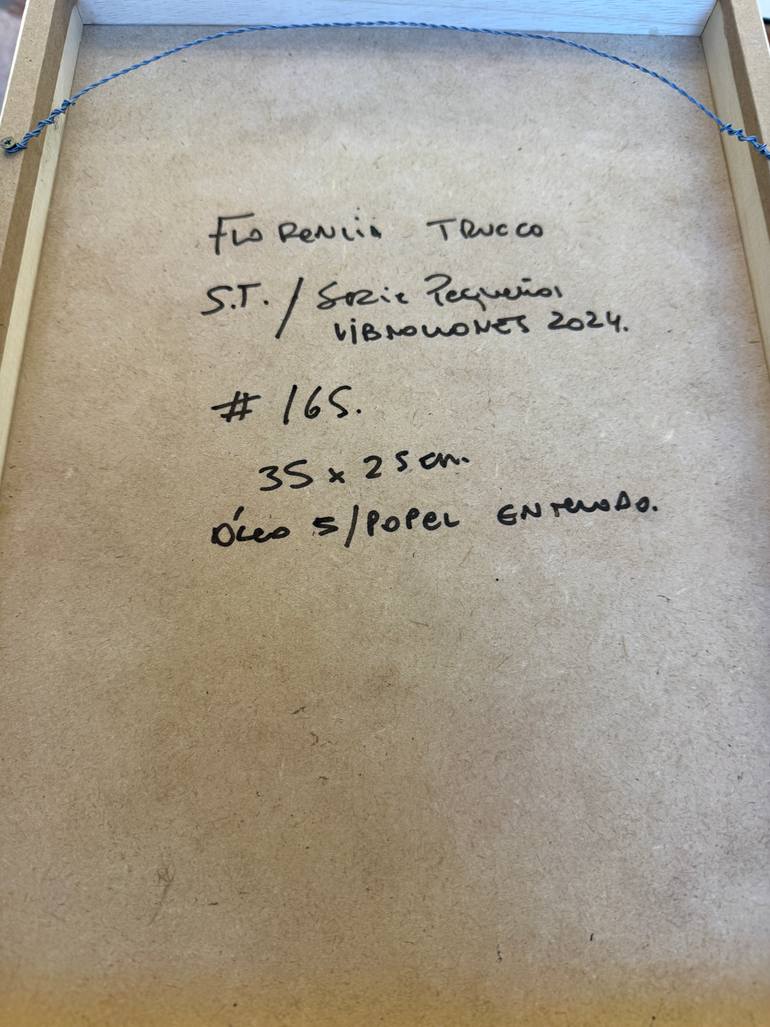 FLORENCIA TRUCCO
S.T. / Serie Pequeñas
VIBRACIONES 2024.
# 165.
35 x 25 cm.
ÓLEO S/PAPEL ENTELADO.